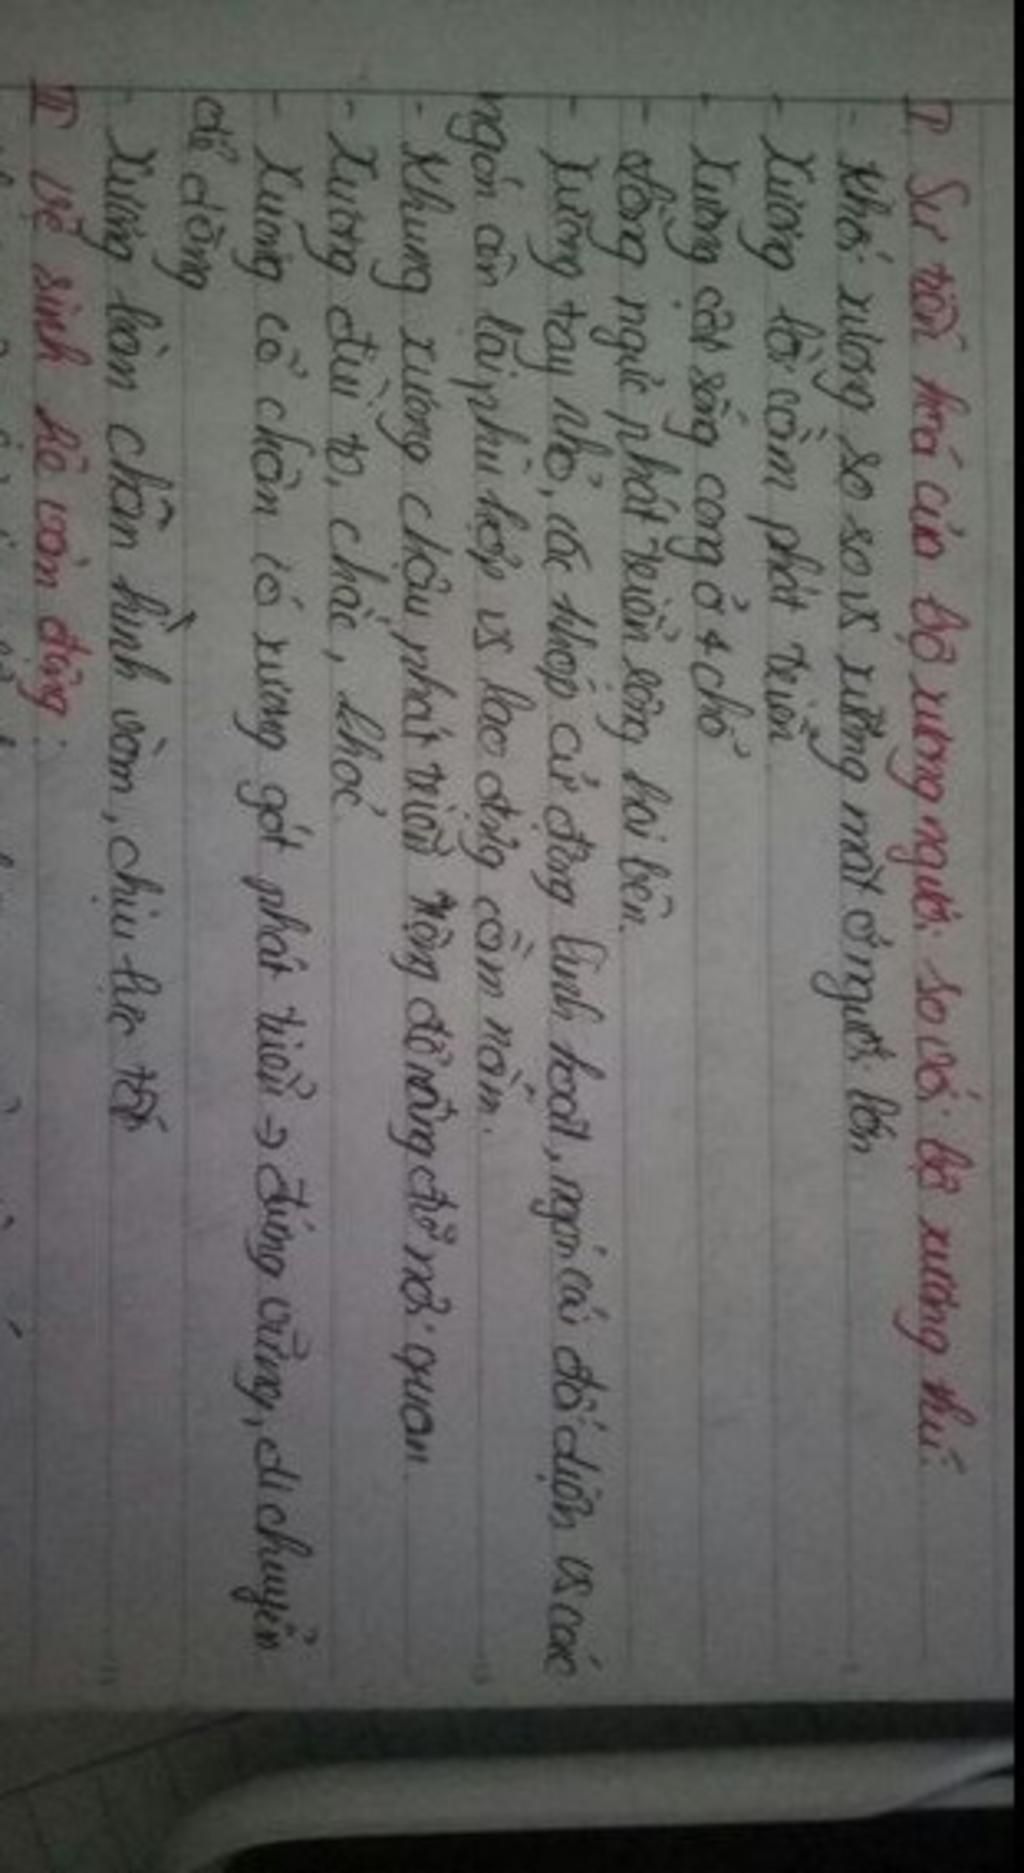 I. Sự tiến hoá của bộ xương người so với bộ xương thú.
- Khối xương sọ so vs xương mặt ở người lớn
- Xương lồi cằm phát triển
- Xương cột sống cong ở 4 chỗ
- Lồng ngực phát triển sang hai bên.
- Xương tay nhỏ, các khớp cử động linh hoạt, ngón cái đối diện vs các
ngón còn lại phù hợp vs lao động cầm nắm.
- Khung xương chậu phát triển rộng để nâng đỡ nội quan.
- Xương đùi to, chắc, khoẻ
- Xương cổ chân có xương gót phát triển → đứng vững, di chuyển
dễ dàng
- Xương bàn chân hình vòm, chịu lực tốt
II Vệ sinh hệ vận động: